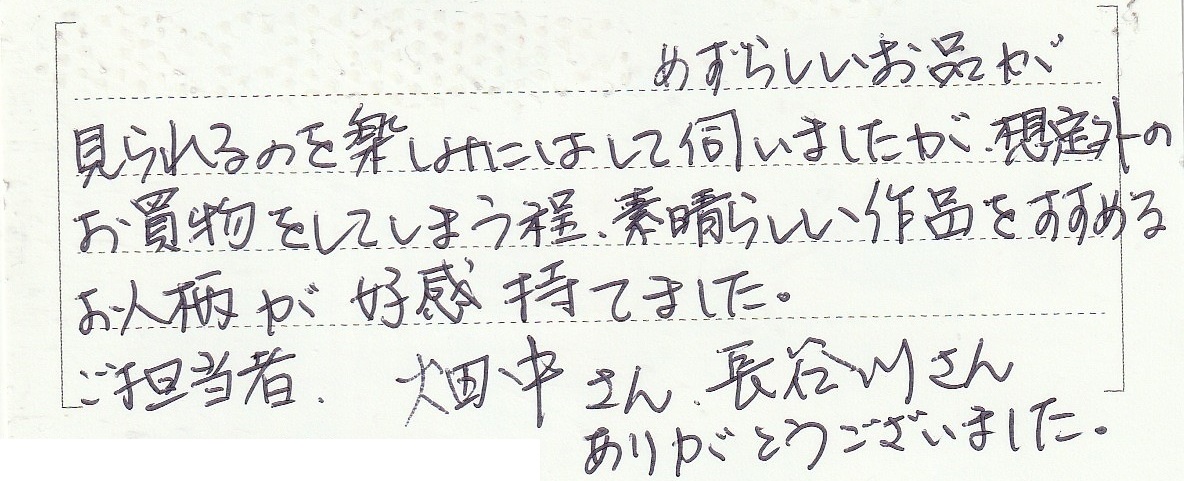 めずらしいお品が
見られるのを楽しみにはして伺いましたが、想定外の
お買物をしてしまう程、素晴らしい作品をすすめる
お人柄が好感持てました。
ご担当者、畑中さん、長谷川さん
ありがとうございました。